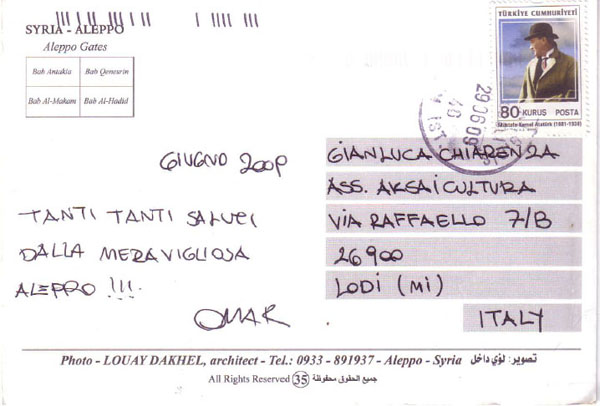 SYRIA - ALEPPO
Aleppo Gates
Bab Antakia
Bab Qenesrin
Bab Al-Makam
Bab Al-Hadid
TÜRKİYE CUMHURİYETİ
80 KURUŞ POSTA
Mustafa Kemal Atatürk (1881-1938)
290609
GIUGNO 2009
TANTI TANTI SALUTI
DALLA MERAVIGLIOSA
ALEPPO !!!
OMAR
GIANLUCA CHIARENZA
ASS. AKSAICULTURA
VIA RAFFAELLO 7/B
26900
LODI (MI)
ITALY
Photo - LOUAY DAKHEL, architect - Tel.: 0933 - 891937 - Aleppo - Syria تصوير: لؤي داخل
All Rights Reserved 35 جميع الحقوق محفوظة